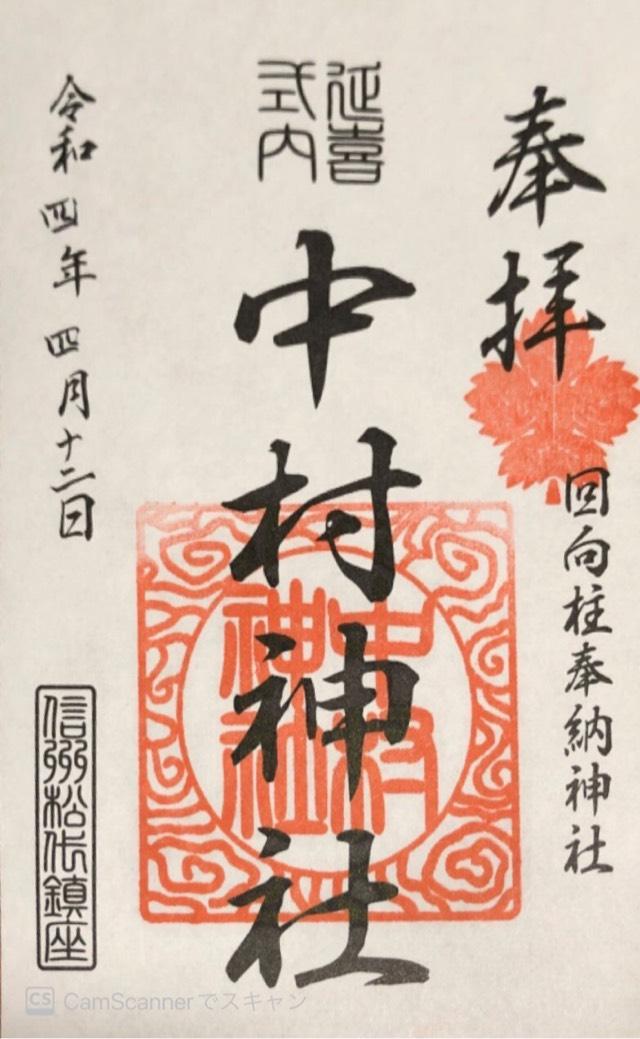 奉拝
回向柱奉納神社
延喜
式内
中村神社
中村
神社
令和四年四月十二日
信州松代鎮座
CS CamScannerでスキャン